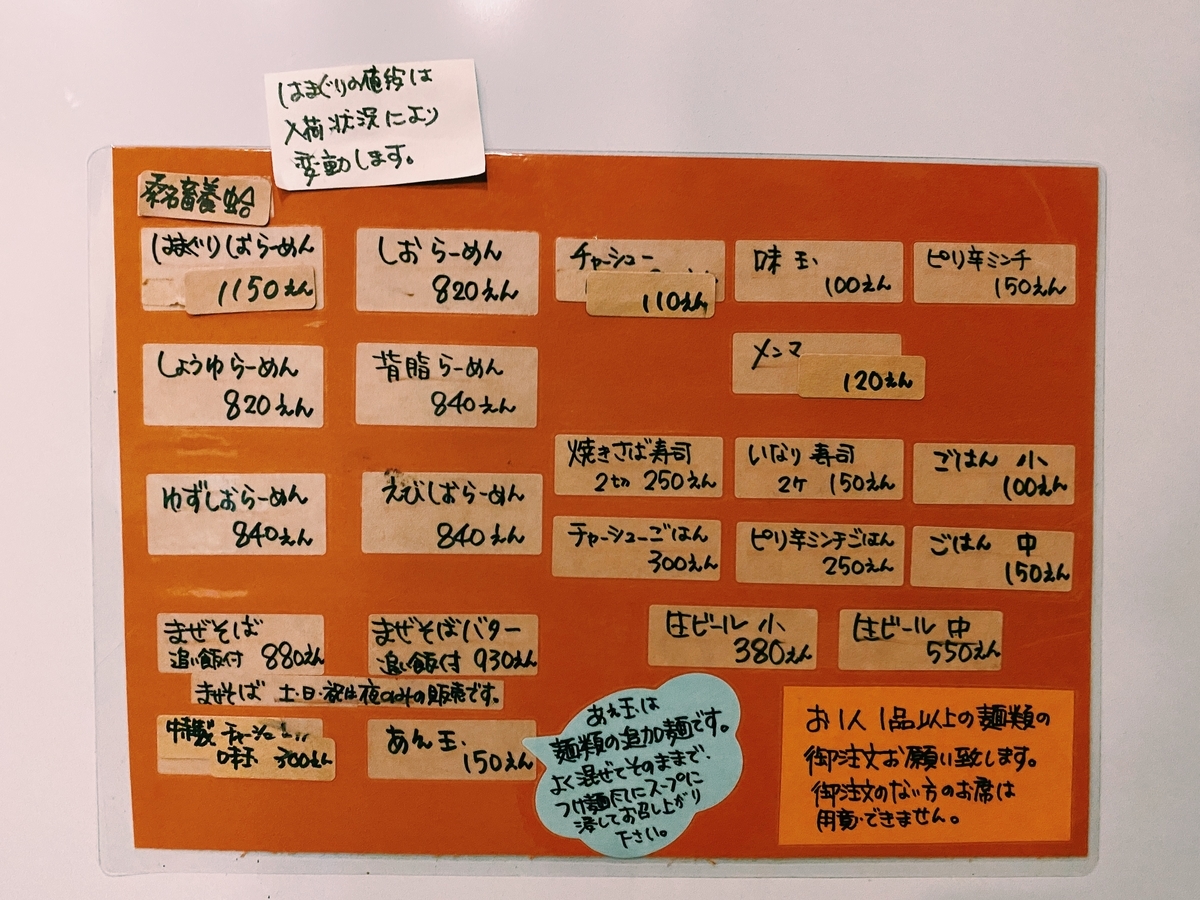 はまぐりの値段は
入荷状況により
変動します。
桑名畜養蛤
はまぐりしおらーめん
1150えん
しおらーめん
820えん
チャーシュー
110えん
味玉
100えん
ピリ辛ミンチ
150えん
しょうゆらーめん
820えん
背脂らーめん
840えん
メンマ
120えん
焼きさば寿司
2切 250えん
いなり寿司
2ケ 150えん
ごはん 小
100えん
ゆずしおらーめん
840えん
えびしおらーめん
840えん
チャーシューごはん
300えん
ピリ辛ミンチごはん
250えん
ごはん 中
150えん
まぜそば
追い飯付 880えん
まぜそばバター
追い飯付 930えん
生ビール 小
380えん
生ビール 中
550えん
まぜそば 土・日・祝は夜のみの販売です。
特製 チャーシュー
味玉 300えん
あえ玉
150えん
あえ玉は
麺類の追加麺です。
よく混ぜてそのままで、
つけ麺風にスープに
浸してお召し上がり
下さい。
お1人1品以上の麺類の
御注文お願い致します。
御注文のない方のお席は
用意できません。